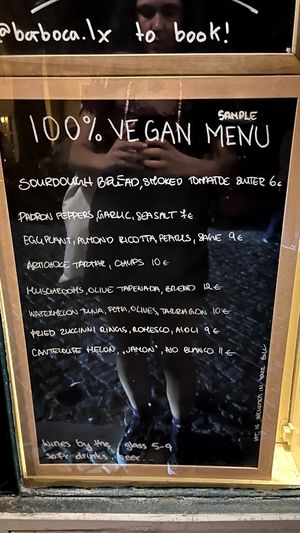 @barboca.lx to book!
SAMPLE
100% VEGAN MENU
SOURDOUGH BREAD, SMOKED TOMATOE BUTTER 6€
PADRON PEPPERS, GARLIC, SEA SALT 7€
EGGPLANT, ALMOND RICOTTA, PEARLS, SAGE 9€
ARTICHOKE TARTAR, CHIPS 10€
MUSHROOMS, OLIVE TAPENADA, 12€
WATERMELON TUNA, FETA, OLIVES, TARRAGON 10€
FRIED ZUCCINNI RINGS, ROMESCO, AIOLI 9€
CANTELOUPE MELON, "JAMON", AJO BLANCO 11€
VAT IS INCLUDED IN YOUR BILL
wines by the glass 5-9
soft drinks, beer...